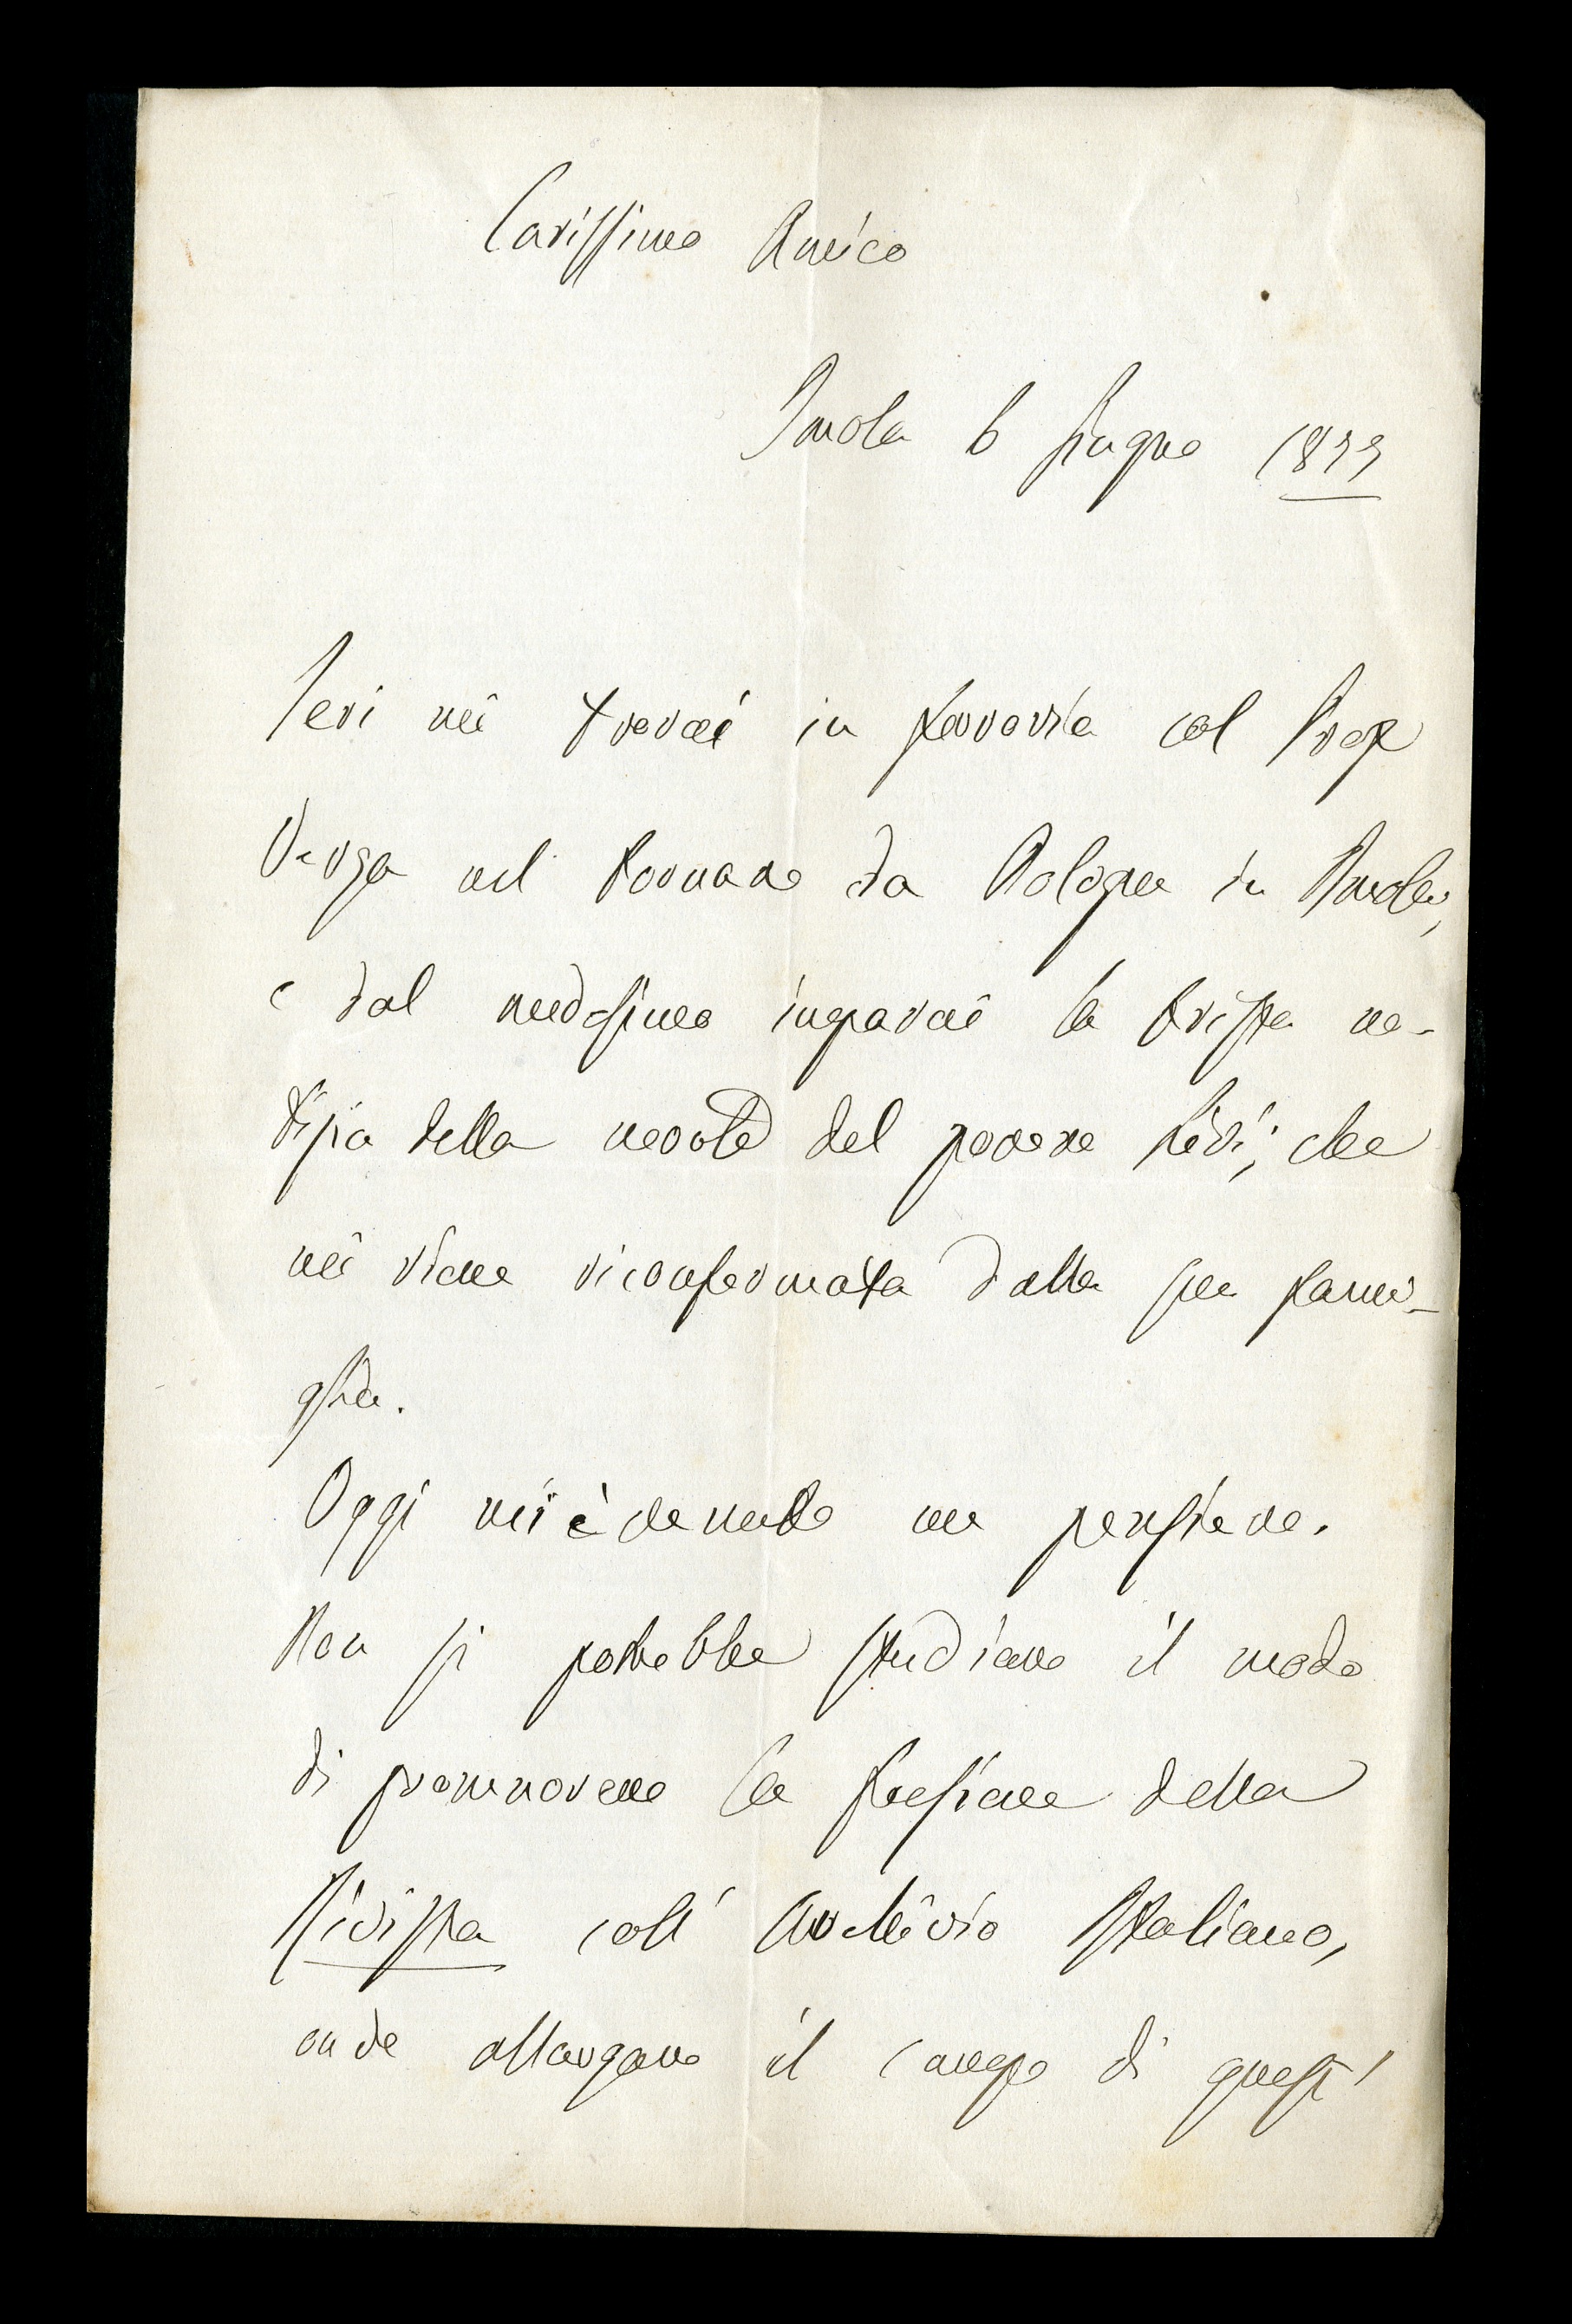 Carissimo Amico
Imola 6 Giugno 1877
Ieri mi trovai in ferrovia col Prof
Verga nel tornare da Bologna in Imola,
e dal medesimo imparai la trista no-
tizia della morte del povero Livi; che
mi viene riconfermata dalla sua fami-
glia.
Oggi mi è venuto un pensiero.
Non si potrebbe studiare il modo
di promuovere la fusione della
Rivista coll' Archivio Italiano,
onde allargare il campo di questi